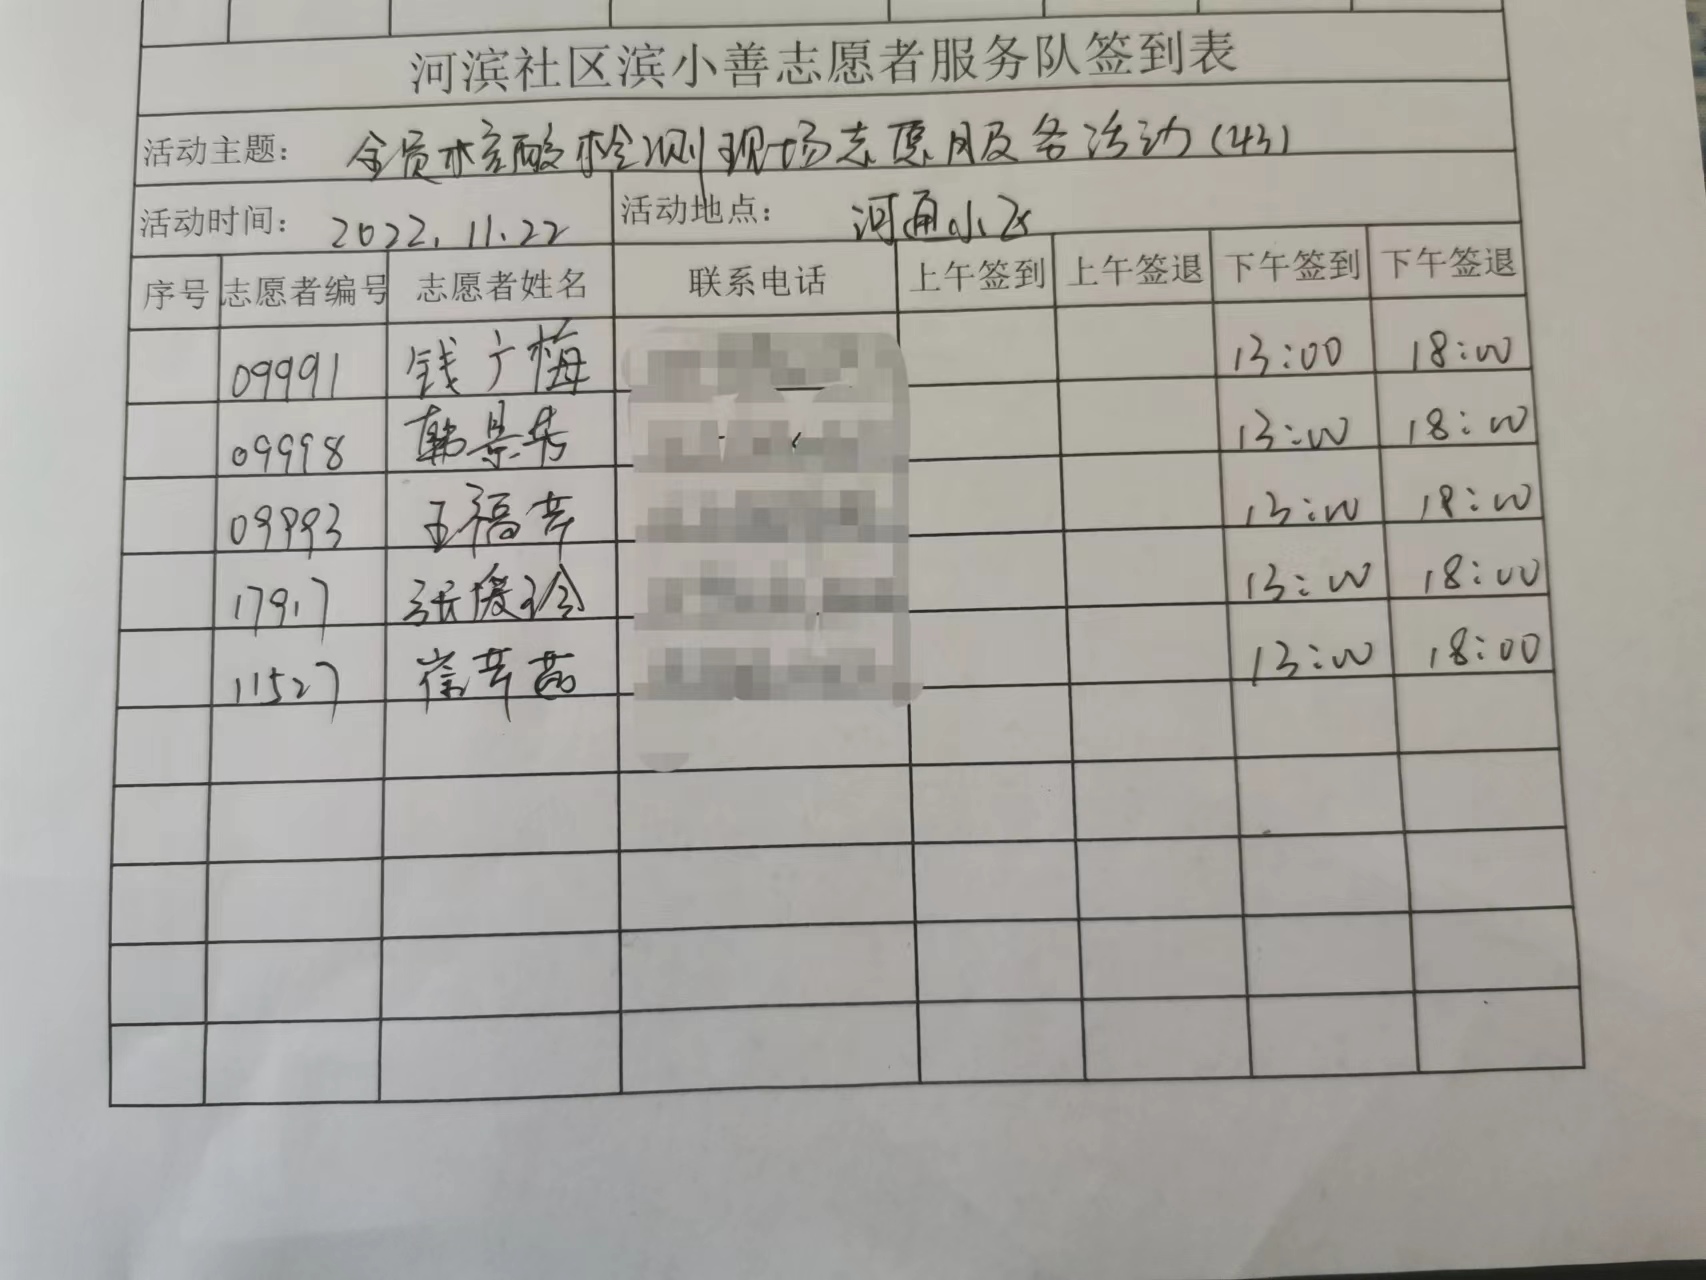 河滨社区滨小善志愿者服务队签到表
活动主题： 全员核酸检测现场志愿服务活动(43)
活动时间： 2022.11.22 活动地点： 河通小区
序号 志愿者编号 志愿者姓名 联系电话 上午签到 上午签退 下午签到 下午签退
09991 钱广梅 13:00 18:00
09998 韩景秀 13:00 18:00
09993 王福芹 13:00 18:00
17917 张爱玲 13:00 18:00
11527 崔芹茜 13:00 18:00